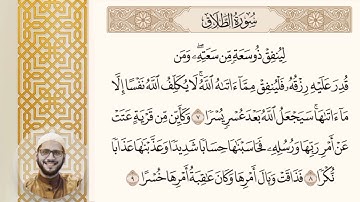 سُورَةُ الطَّلَاقِ
لِيُنفِقْ ذُو سَعَةٍ مِّن سَعَتِهِۦۖ وَمَن
قُدِرَ عَلَيْهِ رِزْقُهُۥ فَلْيُنفِقْ مِمَّآ ءَاتَىٰهُ ٱللَّهُۚ لَا يُكَلِّفُ ٱللَّهُ نَفْسًا إِلَّا
مَآ ءَاتَىٰهَاۚ سَيَجْعَلُ ٱللَّهُ بَعْدَ عُسْرٍ يُسْرًا ٧ وَكَأَيِّن مِّن قَرْيَةٍ عَتَتْ
عَنْ أَمْرِ رَبِّهَا وَرُسُلِهِۦ فَحَاسَبْنَٰهَا حِسَابًا شَدِيدًا وَعَذَّبْنَٰهَا عَذَابًا
نُّكْرًا ٨ فَذَاقَتْ وَبَالَ أَمْرِهَا وَكَانَ عَٰقِبَةُ أَمْرِهَا خُسْرًا ٩